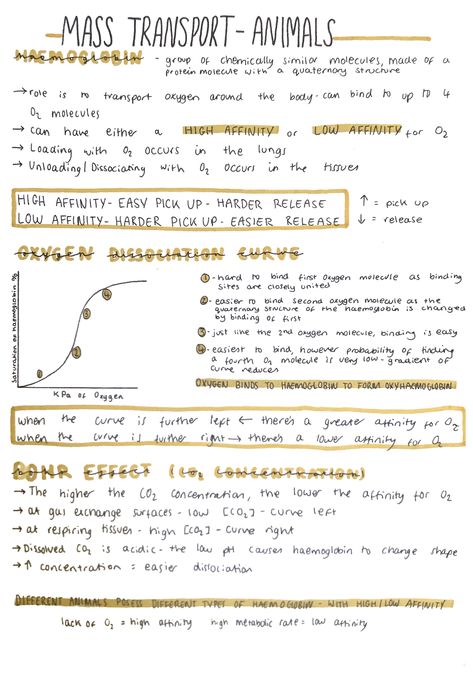 MASS TRANSPORT - ANIMALS
HAEMOGLOBIN - group of chemically similar molecules, made of a
protein molecule with a quaternary structure
→ role is to transport oxygen around the body - can bind to up to 4
O₂ molecules
→ can have either a HIGH AFFINITY or LOW AFFINITY for O₂
→ Loading with O₂ occurs in the lungs
→ Unloading/Dissociating with O₂ occurs in the tissues
HIGH AFFINITY - EASY PICK UP - HARDER RELEASE
LOW AFFINITY - HARDER PICK UP - EASIER RELEASE
↑ = pick up
↓ = release
OXYGEN DISSOCIATION CURVE
Saturation of haemoglobin %
1
2
3
4
KPa of Oxygen
① - hard to bind first oxygen molecule as binding
sites are closely united
② - easier to bind second oxygen molecule as the
quaternary structure of the haemoglobin is changed
by binding of first
③ - just like the 2nd oxygen molecule, binding is easy
④ - easiest to bind, however probability of finding
a fourth O₂ molecule is very low - gradient of
curve reduces
OXYGEN BINDS TO HAEMOGLOBIN TO FORM OXYHAEMOGLOBIN
when the curve is further left ← there's a greater affinity for O₂
when the curve is further right → there's a lower affinity for O₂
BOHR EFFECT (CO₂ CONCENTRATION)
→ The higher the CO₂ concentration, the lower the affinity for O₂
→ at gas exchange surfaces - low [CO₂] - curve left
→ at respiring tissues - high [CO₂] - curve right
→ Dissolved CO₂ is acidic - the low pH causes haemoglobin to change shape
→ ↑ concentration = easier dissociation
DIFFERENT ANIMALS POSESS DIFFERENT TYPES OF HAEMOGLOBIN - WITH HIGH/LOW AFFINITY
lack of O₂ = high affinity high metabolic rate = low affinity